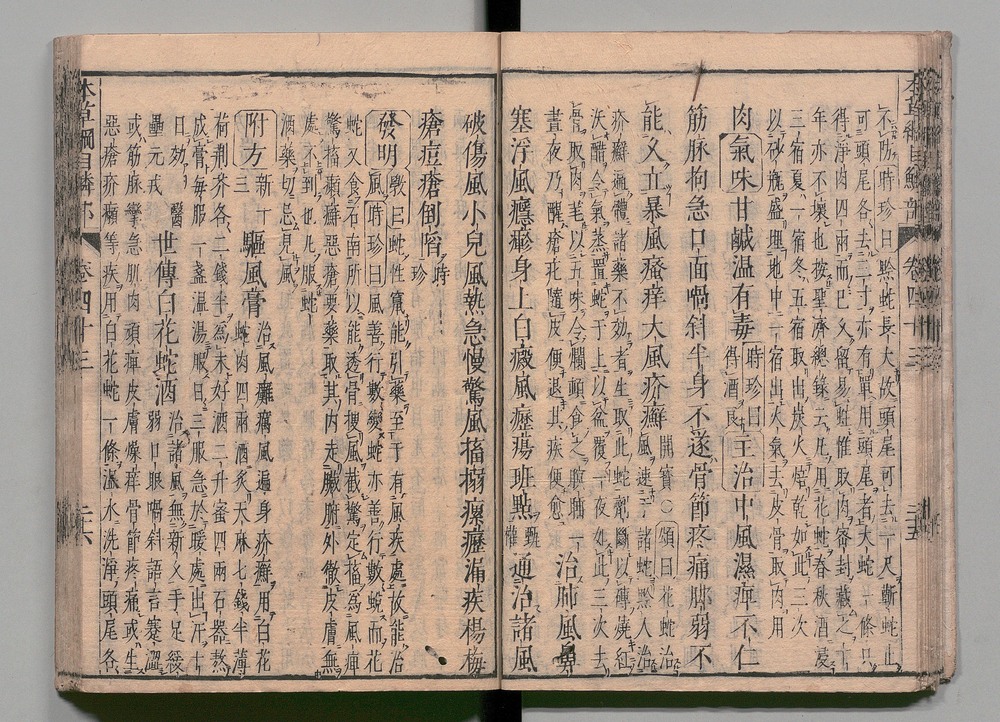 不防時珍曰黔蛇長大故頭尾可去一尺蘄蛇止
可頭尾各去三寸亦有單用頭尾者大蛇一條只
得淨肉四兩而已久留易蛀惟取肉密封藏之十
年亦不壞也按聖濟總錄云凡用花蛇春秋酒浸
三宿夏一宿冬五宿取出炭火焙乾如此三次
以砂瓶盛埋地中一宿出火氣去皮骨取肉用
肉氣味甘鹹温有毒時珍曰得酒良主治中風濕痺不仁
筋脉拘急口面喎斜半身不遂骨節疼痛脚弱不
能久立暴風瘙痒大風疥癬開寶○頌曰花蛇治風速于諸蛇黔人治
疥癬遍體諸藥不効者生取此蛇劑斷以磚燒紅
沃醋令氣蒸置蛇于上以盆覆一夜如此三次去
骨取肉芼以五味令爛頓食之瞑眩一
晝夜乃醒瘡疕隨皮便退其疾便愈治肺風鼻
塞浮風癮疹身上白癜風癧瘍斑點甄權通治諸風
破傷風小兒風熱急慢驚風搐搦瘰癧漏疾楊梅
瘡痘瘡倒陷時珍
發明斅曰蛇性竄能引藥至于有風疾處故能治
風時珍曰風善行數變蛇亦善行數蛻而花
蛇又食石南所以能透骨搜風截驚定搐為風痺
驚搐癩癬惡瘡要藥取其内走臟腑外徹皮膚無
處不到也凡服蛇
酒藥切忌見風
附方新十三驅風膏治風癱癘風遍身疥癬用白花蛇肉四兩酒炙天麻七錢半薄
荷荆芥各二錢半為末好酒二升蜜四兩石器熬
成膏每服一盞温湯服日三服急於暖處出汗十
日効醫壘元戎世傳白花蛇酒治諸風無新久手足緩弱口眼喎斜語言蹇澀
或筋脉攣急肌肉頑痺皮膚燥痒骨節疼痛或生
惡瘡疥癩等疾用白花蛇一條温水洗淨頭尾各
本草綱目鱗部
卷四十三
二十五
本草綱目鱗部
卷四十三
二十六